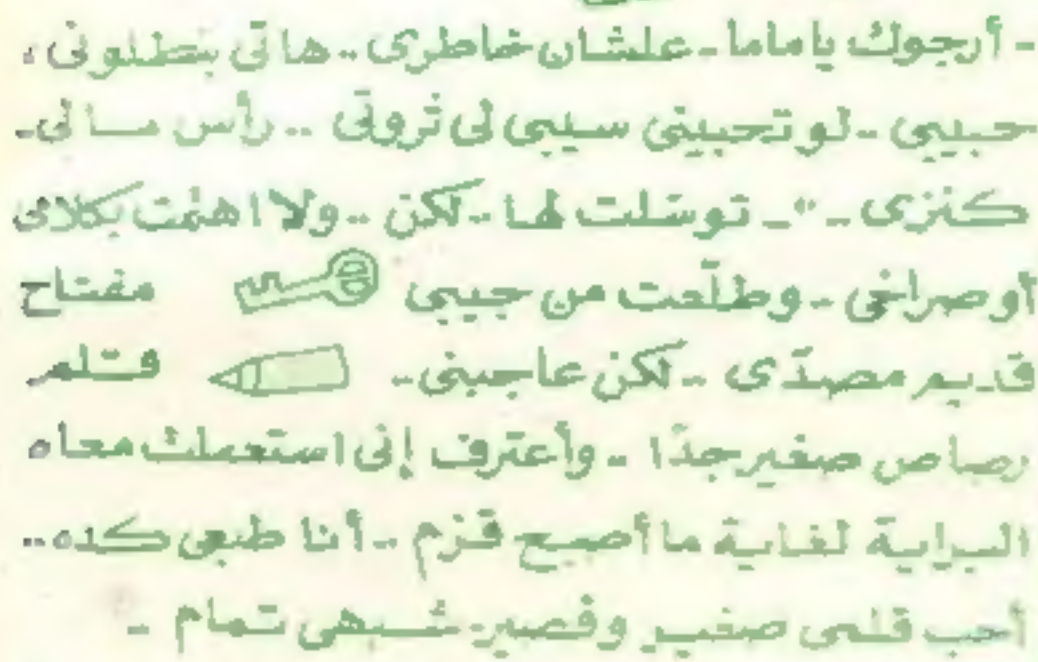 - أرجوك ياماما - علشان خاطرى .. هاتى بنطلونى ،
حبيبى - لو تحبينى سيبى لى ثروتى .. رأس مالى -
كنزى - " - توسّلت لها .. لكن .. ولا اهتمت بكلامى
أو صراخى - وطلّعت من جيبى مفتاح
قديم مصدّى - لكن عاجبنى - قلم
رصاص صغير جدًا - وأعترف إنى استعملت معاه
البراية لغاية ما أصبح قزم - أنا طبعى كده ..
أحب قلمى صغير وقصير شبهى تمام -